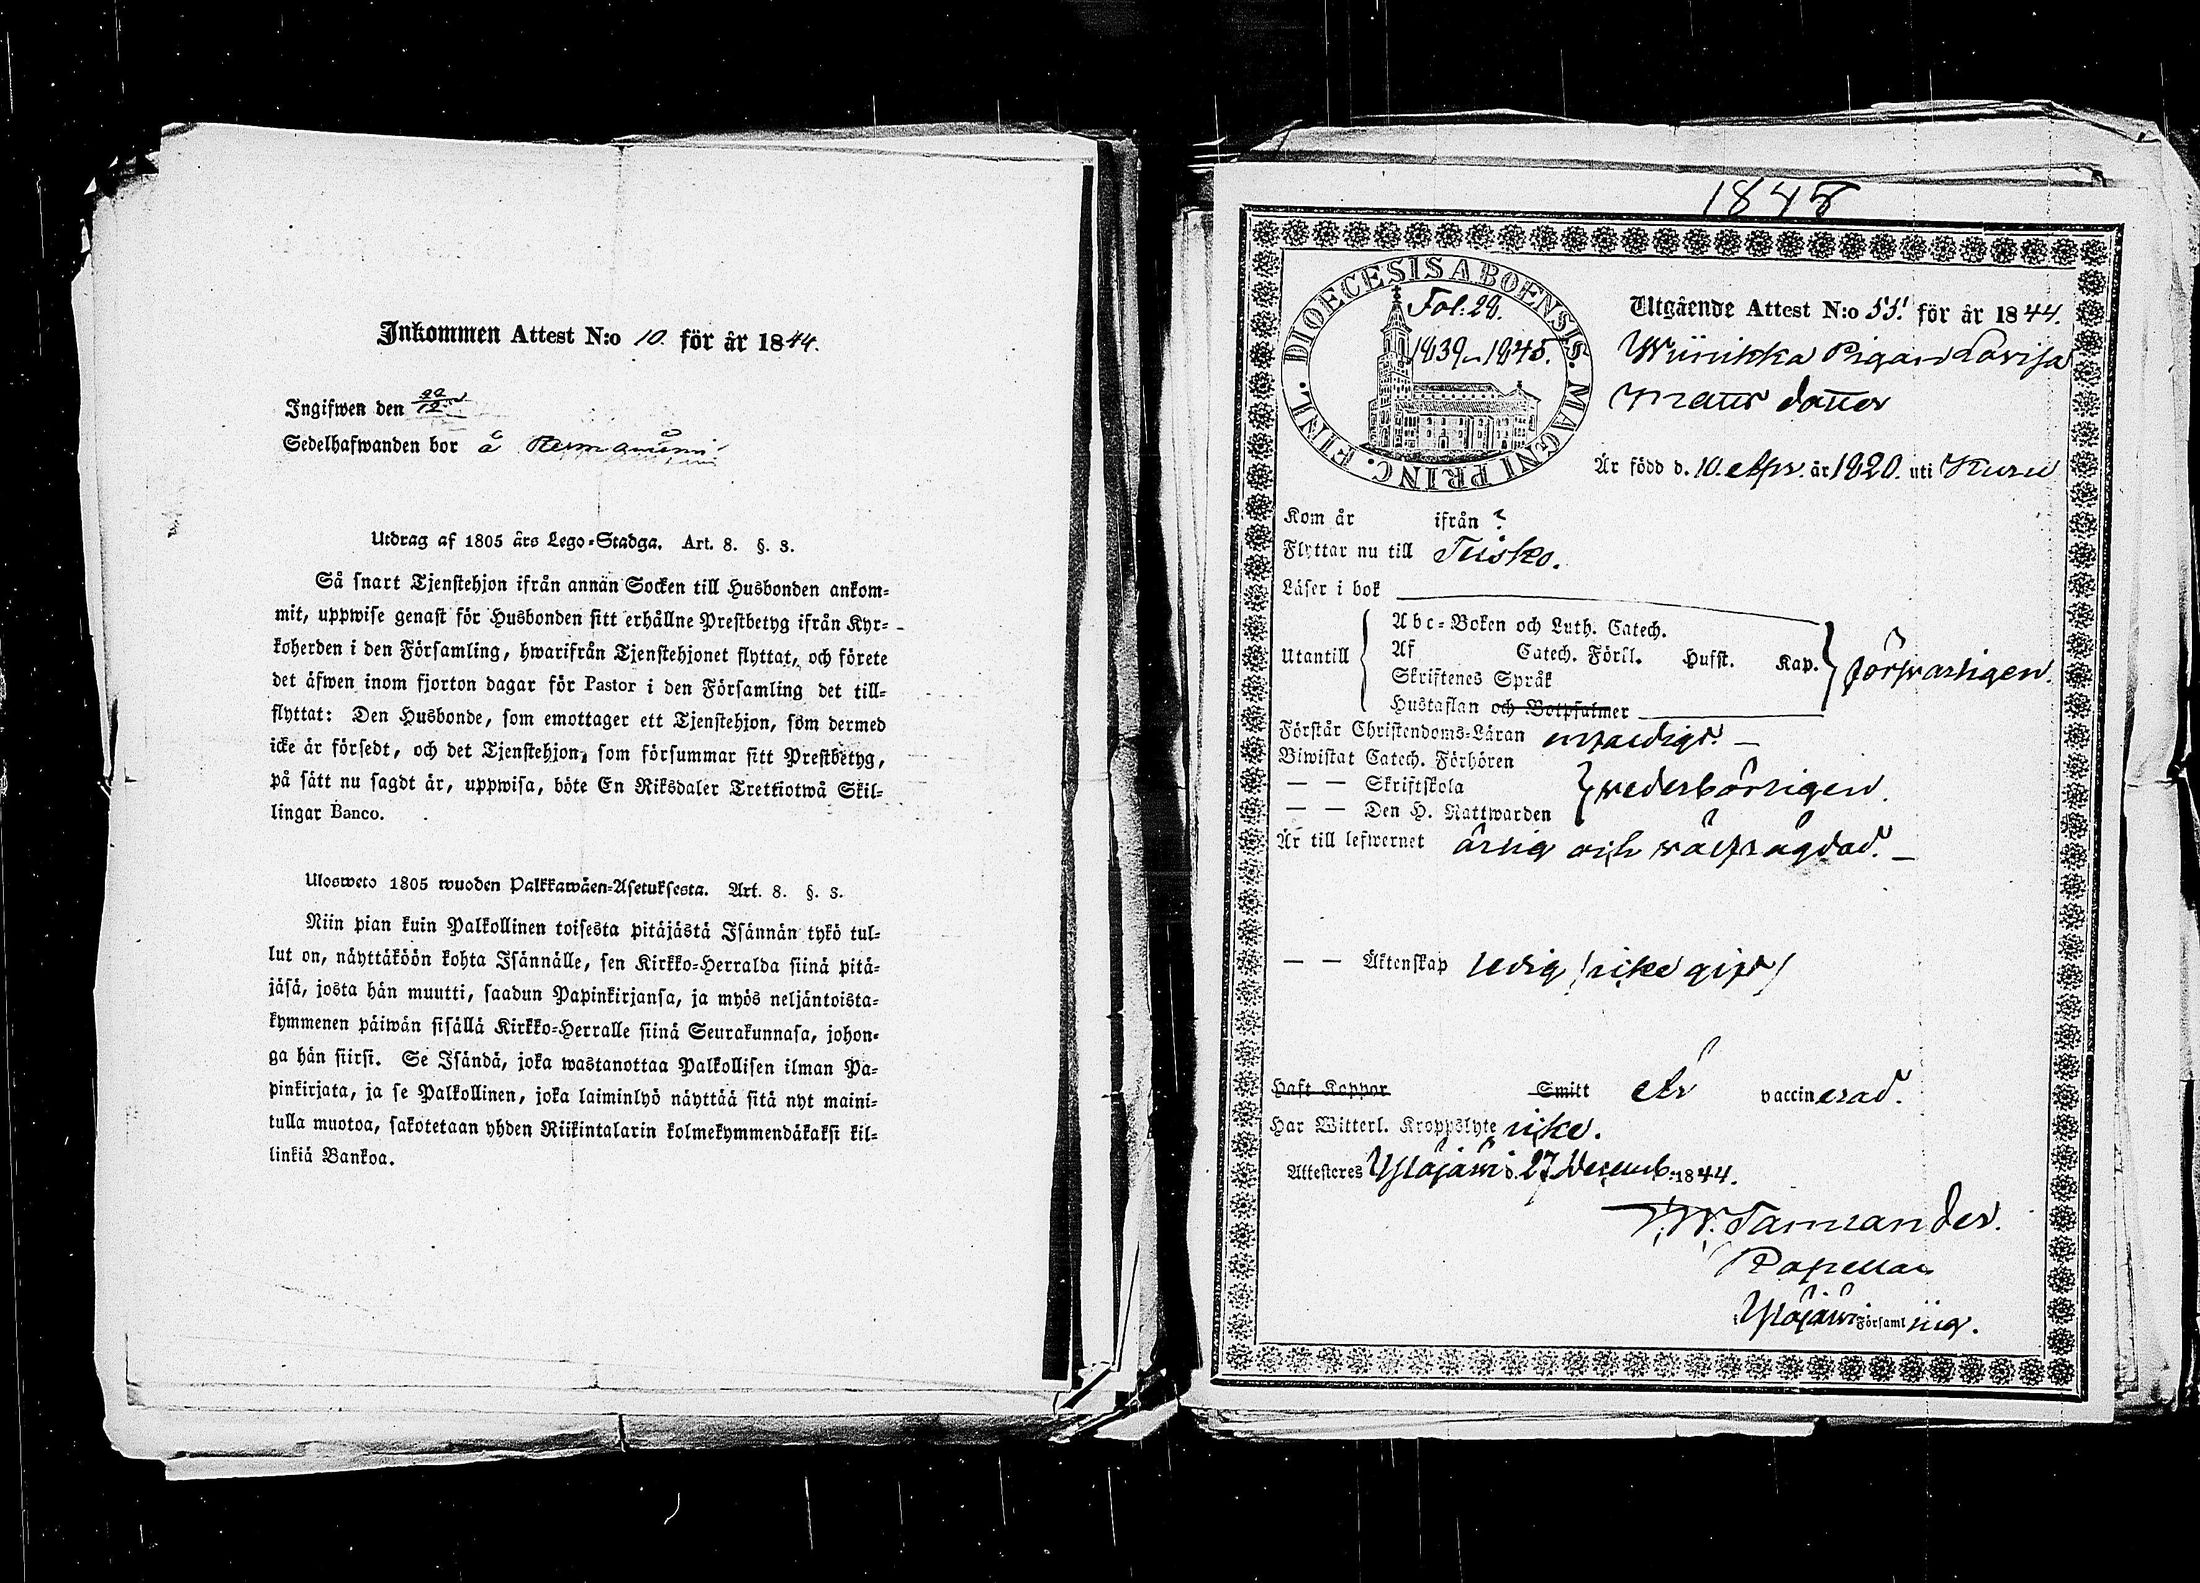 Inkommen Attest N:o 10. för år 1844.
Ingifwen den 29/12
Sedelhafwanden bor å
Utdrag af 1805 års Lego-Stadga. Art. 8. §. 3.
Så snart Tjenstehjon ifrån annan Socken till Husbonden ankom-
mit, uppwise genast för Husbonden sitt erhållne Prestbetyg ifrån Kyr-
koherden i den Församling, hwarifrån Tjenstehjonet flyttat, och förete
det äfwen inom fjorton dagar för Pastor i den Församling det till-
flyttat: Den Husbonde, som emottager ett Tjenstehjon, som dermed
icke är försedt, och det Tjenstehjon, som försummar sitt Prestbetyg,
på sätt nu sagdt är, uppwisa, böte En Riksdaler Trettiotwå Skil-
lingar Banco.
Ulosweto 1805 wuoden Palkkawäen-Asetuksesta. Art. 8. §. 3.
Niin pian kuin Palkollinen toisesta pitäjästä Isännän tykö tul-
lut on, näyttäköön kohta Isännälle, sen Kirkko-Herralda siinä pitä-
jäsä, josta hän muutti, saadun Papinkirjansa, ja myös neljäntoista-
kymmenen päiwän sisällä Kirkko-Herralle siinä Seurakunnasa, johon-
ga hän siirsi. Se Isändä, joka wastanottaa Palkollisen ilman Pa-
pinkirjata, ja se Palkollinen, joka laiminlyö näyttää sitä nyt maini-
tulla muotoa, sakotetaan yhden Riikintalarin kolmekymmendäkaksi kil-
linkiä Bankoa.
1845
DIOECESIS ABOENSIS. MAGNI PRINC. FINL.
Fol: 20.
1839–1845.
Utgående Attest N:o 55. för år 1844.
Wiinikka Pigan Lovisa
Matts dotter
Är född d. 10. Apr. år 1820. uti Kuru
Kom år ifrån ?
Flyttar nu till Teisko.
Läser i bok
Utantill
Abc-Boken och Luth. Catech.
Af Catech. Förkl. Husst. Kap.
Skriftenes Språk
Hustaflan och Botpsalmer
försvarligen.
Förstår Christendoms-Läran enfaldigt. —
Biwistat Catech. Förhören
— — Skriftskola
— — Den H. Nattwarden
wederbörligen.
Är till lefwernet ärlig och wälfrägdad. —
— — Äktenskap ledig /icke gift/
Haft Koppor Smitt Är vaccinerad.
Har Witterl. Kroppslyte icke.
Attesteres Ylöjärwi d. 27 Decemb. 1844.
W. Tammander.
Kapellan
i Ylöjärwi Församling.